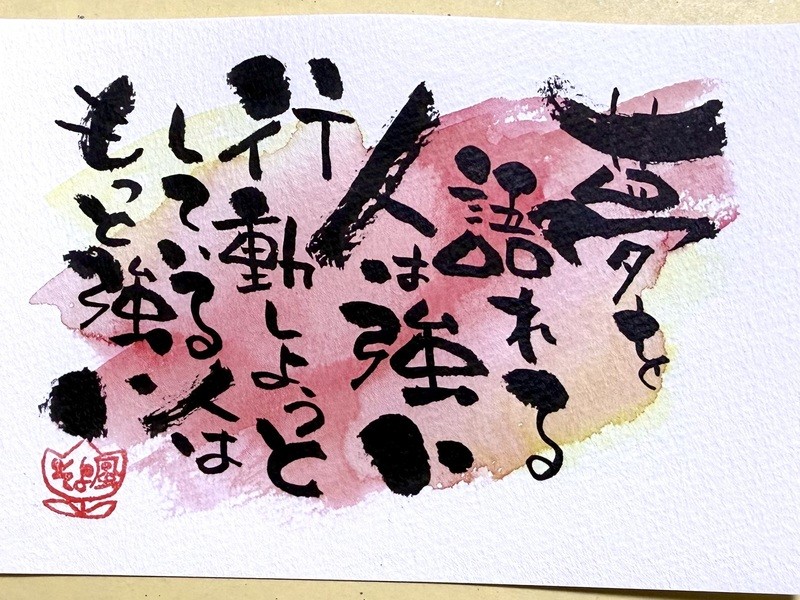 夢を
語れる
人は強い
行動しようと
している人は
もっと強い
そよ風